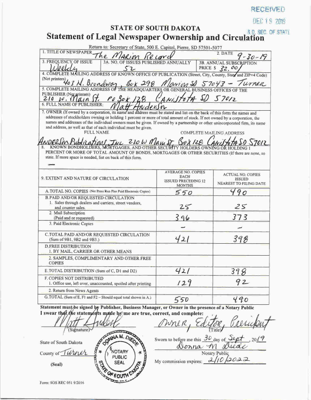 RECEIVED
DEC 18 2019
S.D. SEC. OF STATE
STATE OF SOUTH DAKOTA
Statement of Legal Newspaper Ownership and Circulation
Return to: Secretary of State, 500 E. Capitol, Pierre, SD 57501-5077
1. TITLE OF NEWSPAPER The Marion Record
2. DATE 9-30-19
3. FREQUENCY OF ISSUE Weekly
3A. NO. OF ISSUES PUBLISHED ANNUALLY 52
3B. ANNUAL SUBSCRIPTION PRICE $ 32.00
4. COMPLETE MAILING ADDRESS OF KNOWN OFFICE OF PUBLICATION (Street, City, County, State and ZIP+4 Code) (Not printers)
401 N. Broadway Box 298 Marion SD 57043 - Turner
5. COMPLETE MAILING ADDRESS OF THE HEADQUARTERS OF GENERAL BUSINESS OFFICES OF THE PUBLISHER (Not printer)
210 W. Main St. PO Box 128 Canistota SD 57012
6. FULL NAME OF PUBLISHER: Matt Anderson
7. OWNER (If owned by a corporation, its name and address must be stated and also immediately
addresses of stockholders owning or holding 1 percent or more of total amount of stock. If not owned by a corporation, the
names and addresses of the individual owners must be given. If owned by a partnership or other unincorporated firm, its name
and address, as well as that of each individual must be given.
FULL NAME
COMPLETE MAILING ADDRESS
Anderson Publications, Inc. 210 W Main St Box 128 Canistota SD 57012
8. KNOWN BONDHOLDERS, MORTGAGEES, AND OTHER SECURITY HOLDERS OWNING OR HOLDING 1
PERCENT OR MORE OF TOTAL AMOUNT OF BONDS, MORTGAGES OR OTHER SECURITIES (If there are none, so
state. If more space is needed, list on back of this form.
9. EXTENT AND NATURE OF CIRCULATION
AVERAGE NO. COPIES EACH ISSUE PRECEDING 12 MONTHS
ACTUAL NO. COPIES ISSUED NEAREST TO FILING DATE
A. TOTAL NO. COPIES 550 490
B. PAID AND/OR REQUESTED CIRCULATION
1. Sales through dealers and carriers, street vendors, and counter sales. 25 25
2. Mail Subscription (Paid and or requested) 396 373
3. Paid Electronic Copies - -
C. TOTAL PAID AND/OR REQUESTED CIRCULATION (Sum of 9B1, 9B2 and 9B3.) 421 398
D. FREE DISTRIBUTION
1. BY MAIL, CARRIER OR OTHER MEANS
2. SAMPLES, COMPLIMENTARY AND OTHER FREE COPIES
E. TOTAL DISTRIBUTION (Sum of C, D1 and D2) 421 398
F. COPIES NOT DISTRIBUTED
1. Office use, left over, unaccounted, spoiled after printing 129 92
2. Return from News Agents
G. TOTAL (Sum of E, F1 and F2 - Should equal total shown in A.) 550 490
Statement must be signed by Publisher, Business Manager, or Owner in the presence of a Notary Public
I swear that the statements made by me are true, correct, and complete:
Owner, Editor, President
(Signature)
(Title)
State of South Dakota
County of Turner
(Seal)
DONNA M. DUDE
NOTARY PUBLIC
SEAL
SOUTH DAKOTA
Sworn to before me this 30 day of Sept 2019
Donna M Dude
Notary Public
My commission expires: 2/10/2022